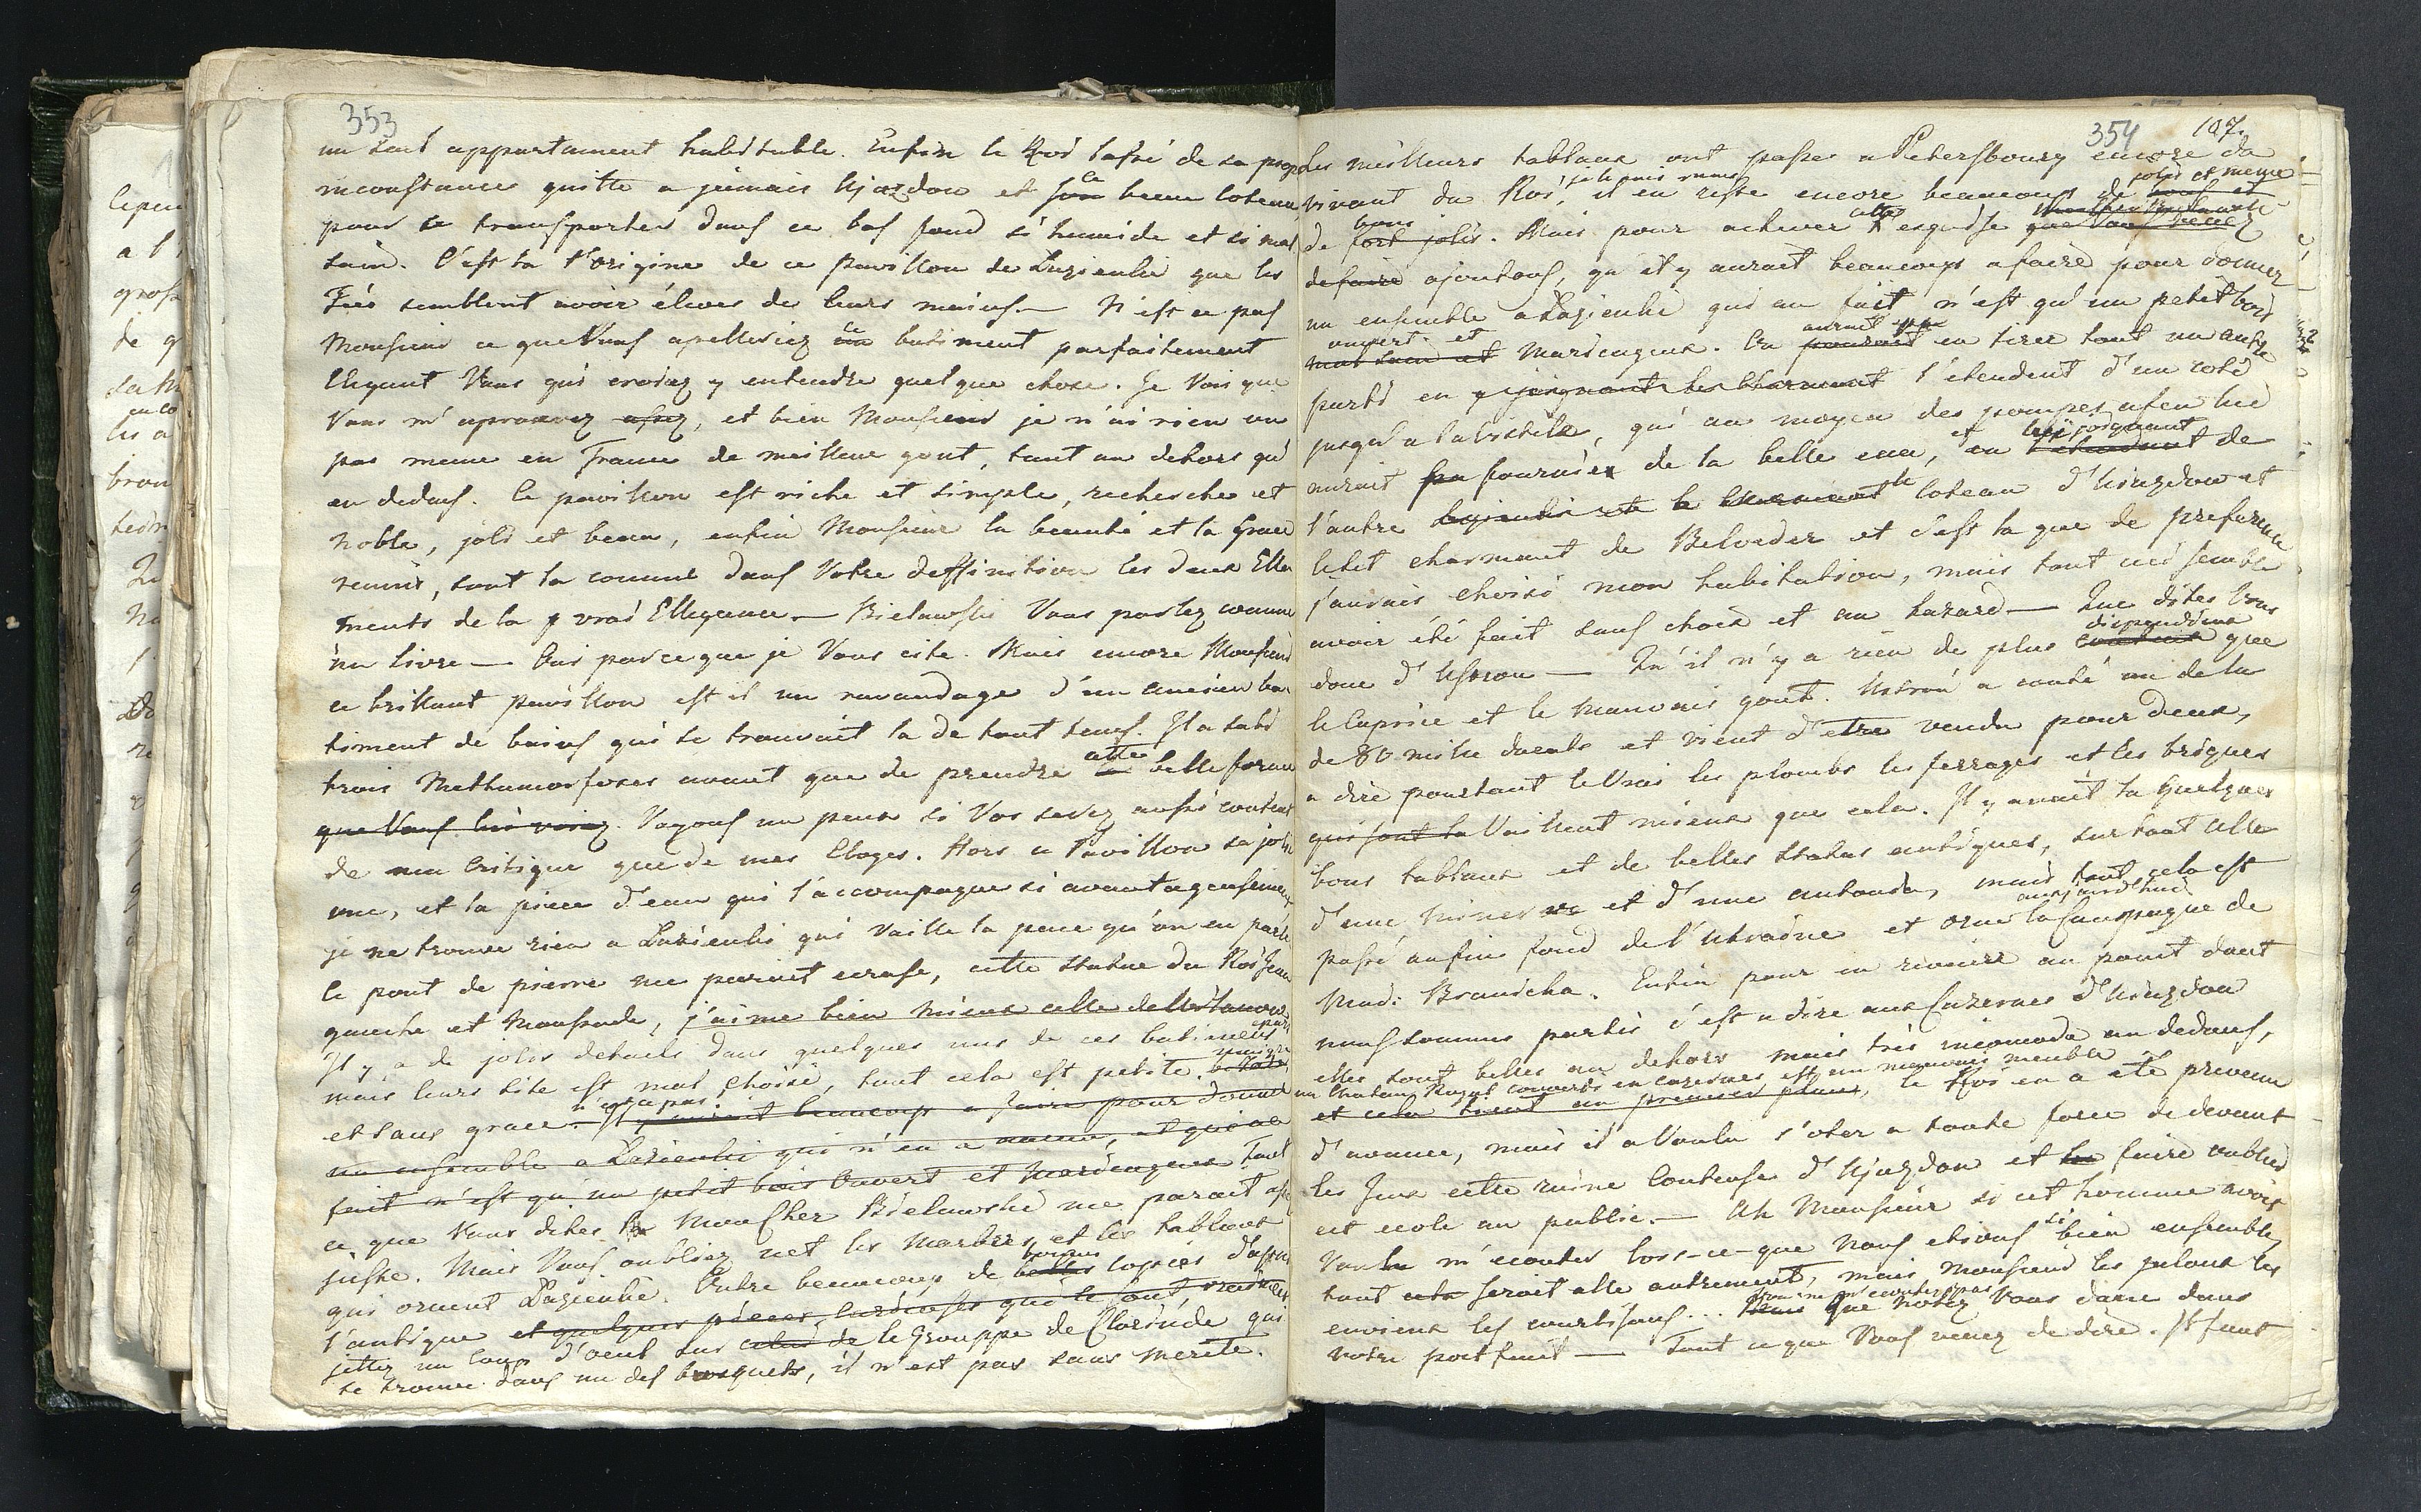 353
un seul appartament habitable. Enfin le Roi lassé de sa propre
inconstance quitte a jamais Ujazdow et son ce beau coteau
pour se transporter dans ce bas fond si humide et si mal
sain. C'est la l'origine de ce pavillon de Lazienki que les
Fées semblent avoir élever de leurs mains. — N'est ce pas
Monsieur ce que Vous apelleriez un ce batiment parfaitement
Elegant Vous qui croiez y entendre quelque chose. Je Vois que
Vous m'aprouvez assez, et bien Monsieur je n'ai rien vu
pas meme en France de meilleur gout, tant au dehors qu'
en dedans. Ce pavillon est riche et simple, recherche et
noble, joli et beau, enfin Monsieur la beauté et la Grace
reunis, sont la comme dans Votre deffinition les deux Elle
ments de la vrai Ellegance. — Bielawski Vous parlez comme
un livre — Oui parceque je Vous cite. Mais encore Monsieur
ce brillant pavillon est il un ravaudage d'un ancien ba
timent de bains qui se trouvait la de tout tems. Il a subi
trois Methamorfoses avant que de prendre la cette belle forme
que Vous lui voiez. Voyons un peux si Vos serez aussi content
de ma Critique que de mes Eloges. Hors ce Pavillon sa jolie
vue, et la piece d'eau qui l'accompagne si avantageusement
je ne trouve rien a Lazienki qui Vaille la pene qu'on en parle
le pont de pierre me parait ecrasé, cette statue du Roi Jean
gauche et Maussade, j'aime bien mieux celle
Il y a de jolis details dans quelques uns de ces batiments epars
mais leurs site est mal choisi, tout cela est petite, maigre
et sans grace. n'est ce pas. Il y aurait beaucoup a faire pour donner
un ensemble a Lazienki qui n'en a aucun, et qui au
fait n'est qu'un petit bois Ouvert et Marécageux Tout
ce que Vous dites Mon Cher Bielawski me parait assé
juste. Mais Vous oubliez net les Marbres et les tableaux
qui ornent Lazienki. Outre beaucoup de belles bonnes copies d'apres
l'antique et quelques pieces curieuses que le sont
jettez un coup d'oeul sur celui de le Grouppe de Clorinde qui
se trouve dans un des bosquets, il n'est pas sans merite.
354 107.
Les meilleurs tableaux ont passes a Petersbourg encore du
vivant du Roi, il en reste encore beaucoup de jolis et meme
de fort jolis bons. Mais pour achever cette esquisse que Vous venez
de faire ajoutons, qu'il y aurait beaucoup a faire pour donner
un ensemble a Lazienki qui au fait n'est qu'un petit bois
ouvert et mal sain et Marécageux. On pourait aurait pu en tirer tout un autre
parti en y joignant les l'etendent d'un coté
jusqu'a la Vistule, qui au moyen des pompes a feu lui
aurait pu fournir de la belle eau, et en l'etendent y joignant de
l'autre le coteau d'Uiazdow et
le sit charmant de Belveder et c'est la que de preference
j'aurais choisi mon habitation, mais tout ici semble
avoir été fait sans choix et au hazard — Que dites Vous
donc d'Ustron — Qu'il n'y a rien de plus couteux dispendieux que
le Caprice et le mauvais gout. Ustron a couté au dela
de 80 mille ducats et vient d'etre vendu pour deux,
a dire pourtant le Vrai les plombs les ferrages et les briques
qui sont la Vaillent mieux que cela. Il y avait la quelques
bons tableaux et de belles statues antiques, surtout celle
d'une Minerve et d'une , mais tout cela est
passé au fin fond de l'Ukraine et orne aujourd'hui la Campagne de
Mad: Branicka. Enfin pour en revenir au point dont
nous sommes partis c'est a dire aux Cazernes d'Uiazdow
elles sont belles au dehors mais très incomode au dedans,
un Chateau Royal converti en cazernes est un mauvais meuble
et cela tient au premier plan, le Roi en a été prevenu
d'avance, mais il a Voulu s'oter a toute force de devant
les Jeux cette ruine Couteuse d'Ujazdow et la faire oublier
cet ecole au public. — Ah Monsieur si cet homme avoit
Voulu m'ecouter lors-ce-que Nous etions si bien ensemble,
tout cela seroit alle autrement, mais Monsieur les jaloux les
envieux les courtisans... Mais que notez Vous donc dans
votre portfeuil — Tout ce que Vous venez de dire. Il faut